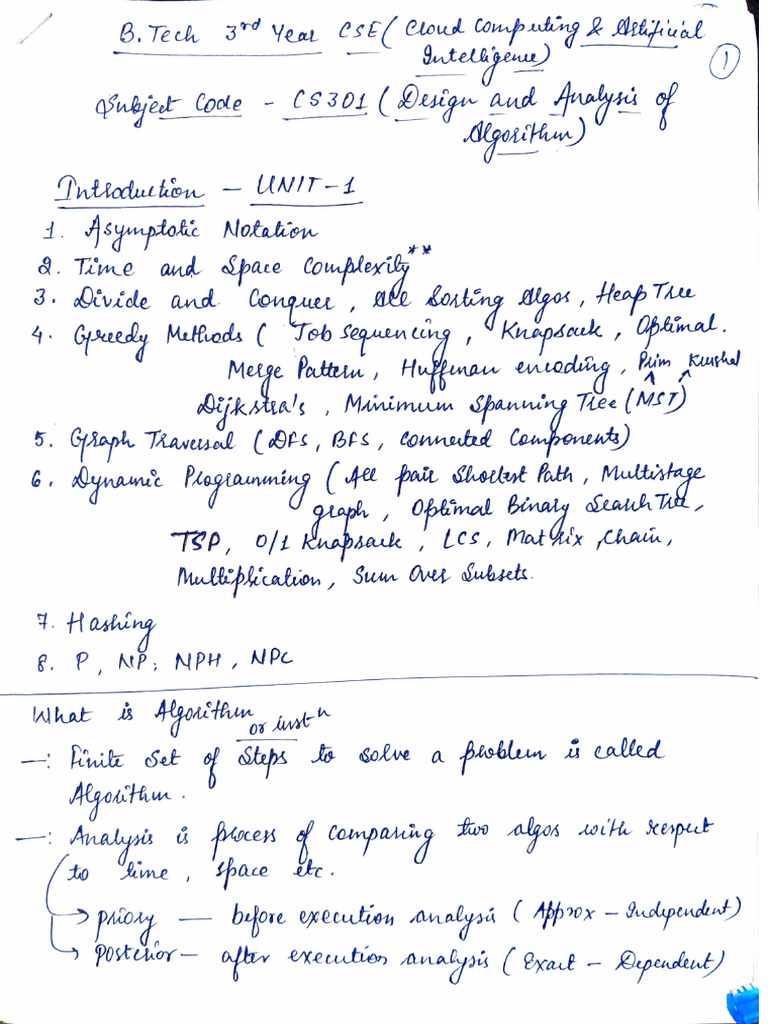 B.Tech 3rd Year CSE (Cloud Computing & Artificial
Intelligence)
1
Subject Code - CS301 (Design and Analysis of
Algorithm)
Introduction - UNIT-1
1. Asymptotic Notation
2. Time and Space Complexity**
3. Divide and Conquer, All Sorting Algos, Heap Tree
4. Greedy Methods ( Job sequencing, Knapsack, Optimal.
Merge Pattern, Huffman encoding, Prim Krushal
Dijkstra's, Minimum Spanning Tree (MST)
5. Graph Traversal (DFS, BFS, Connected Components)
6. Dynamic Programming (All pair Shortest Path, Multistage
graph, Optimal Binary Search Tree,
TSP, 0/1 Knapsack, LCS, Matrix, Chain,
Multiplication, Sum Over Subsets.
7. Hashing
8. P, NP, NPH, NPC
What is Algorithm
or instn
—: Finite Set of Steps to solve a problem is called
Algorithm.
—: Analysis is process of comparing two algos with respect
to time, space etc.
→ priory — before execution analysis (Approx - Independent)
→ Posterior - after execution analysis (Exact - Dependent)